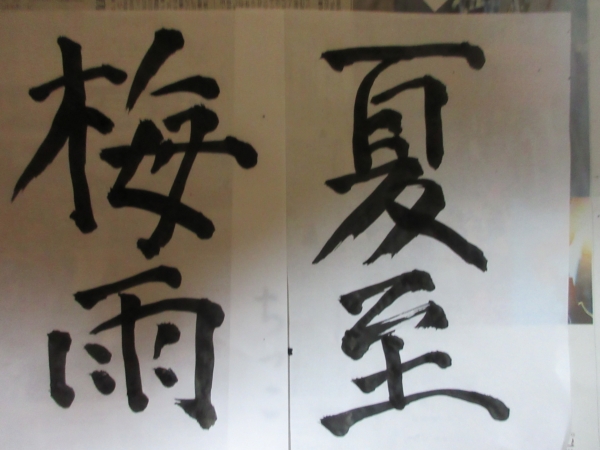 夏至
梅雨